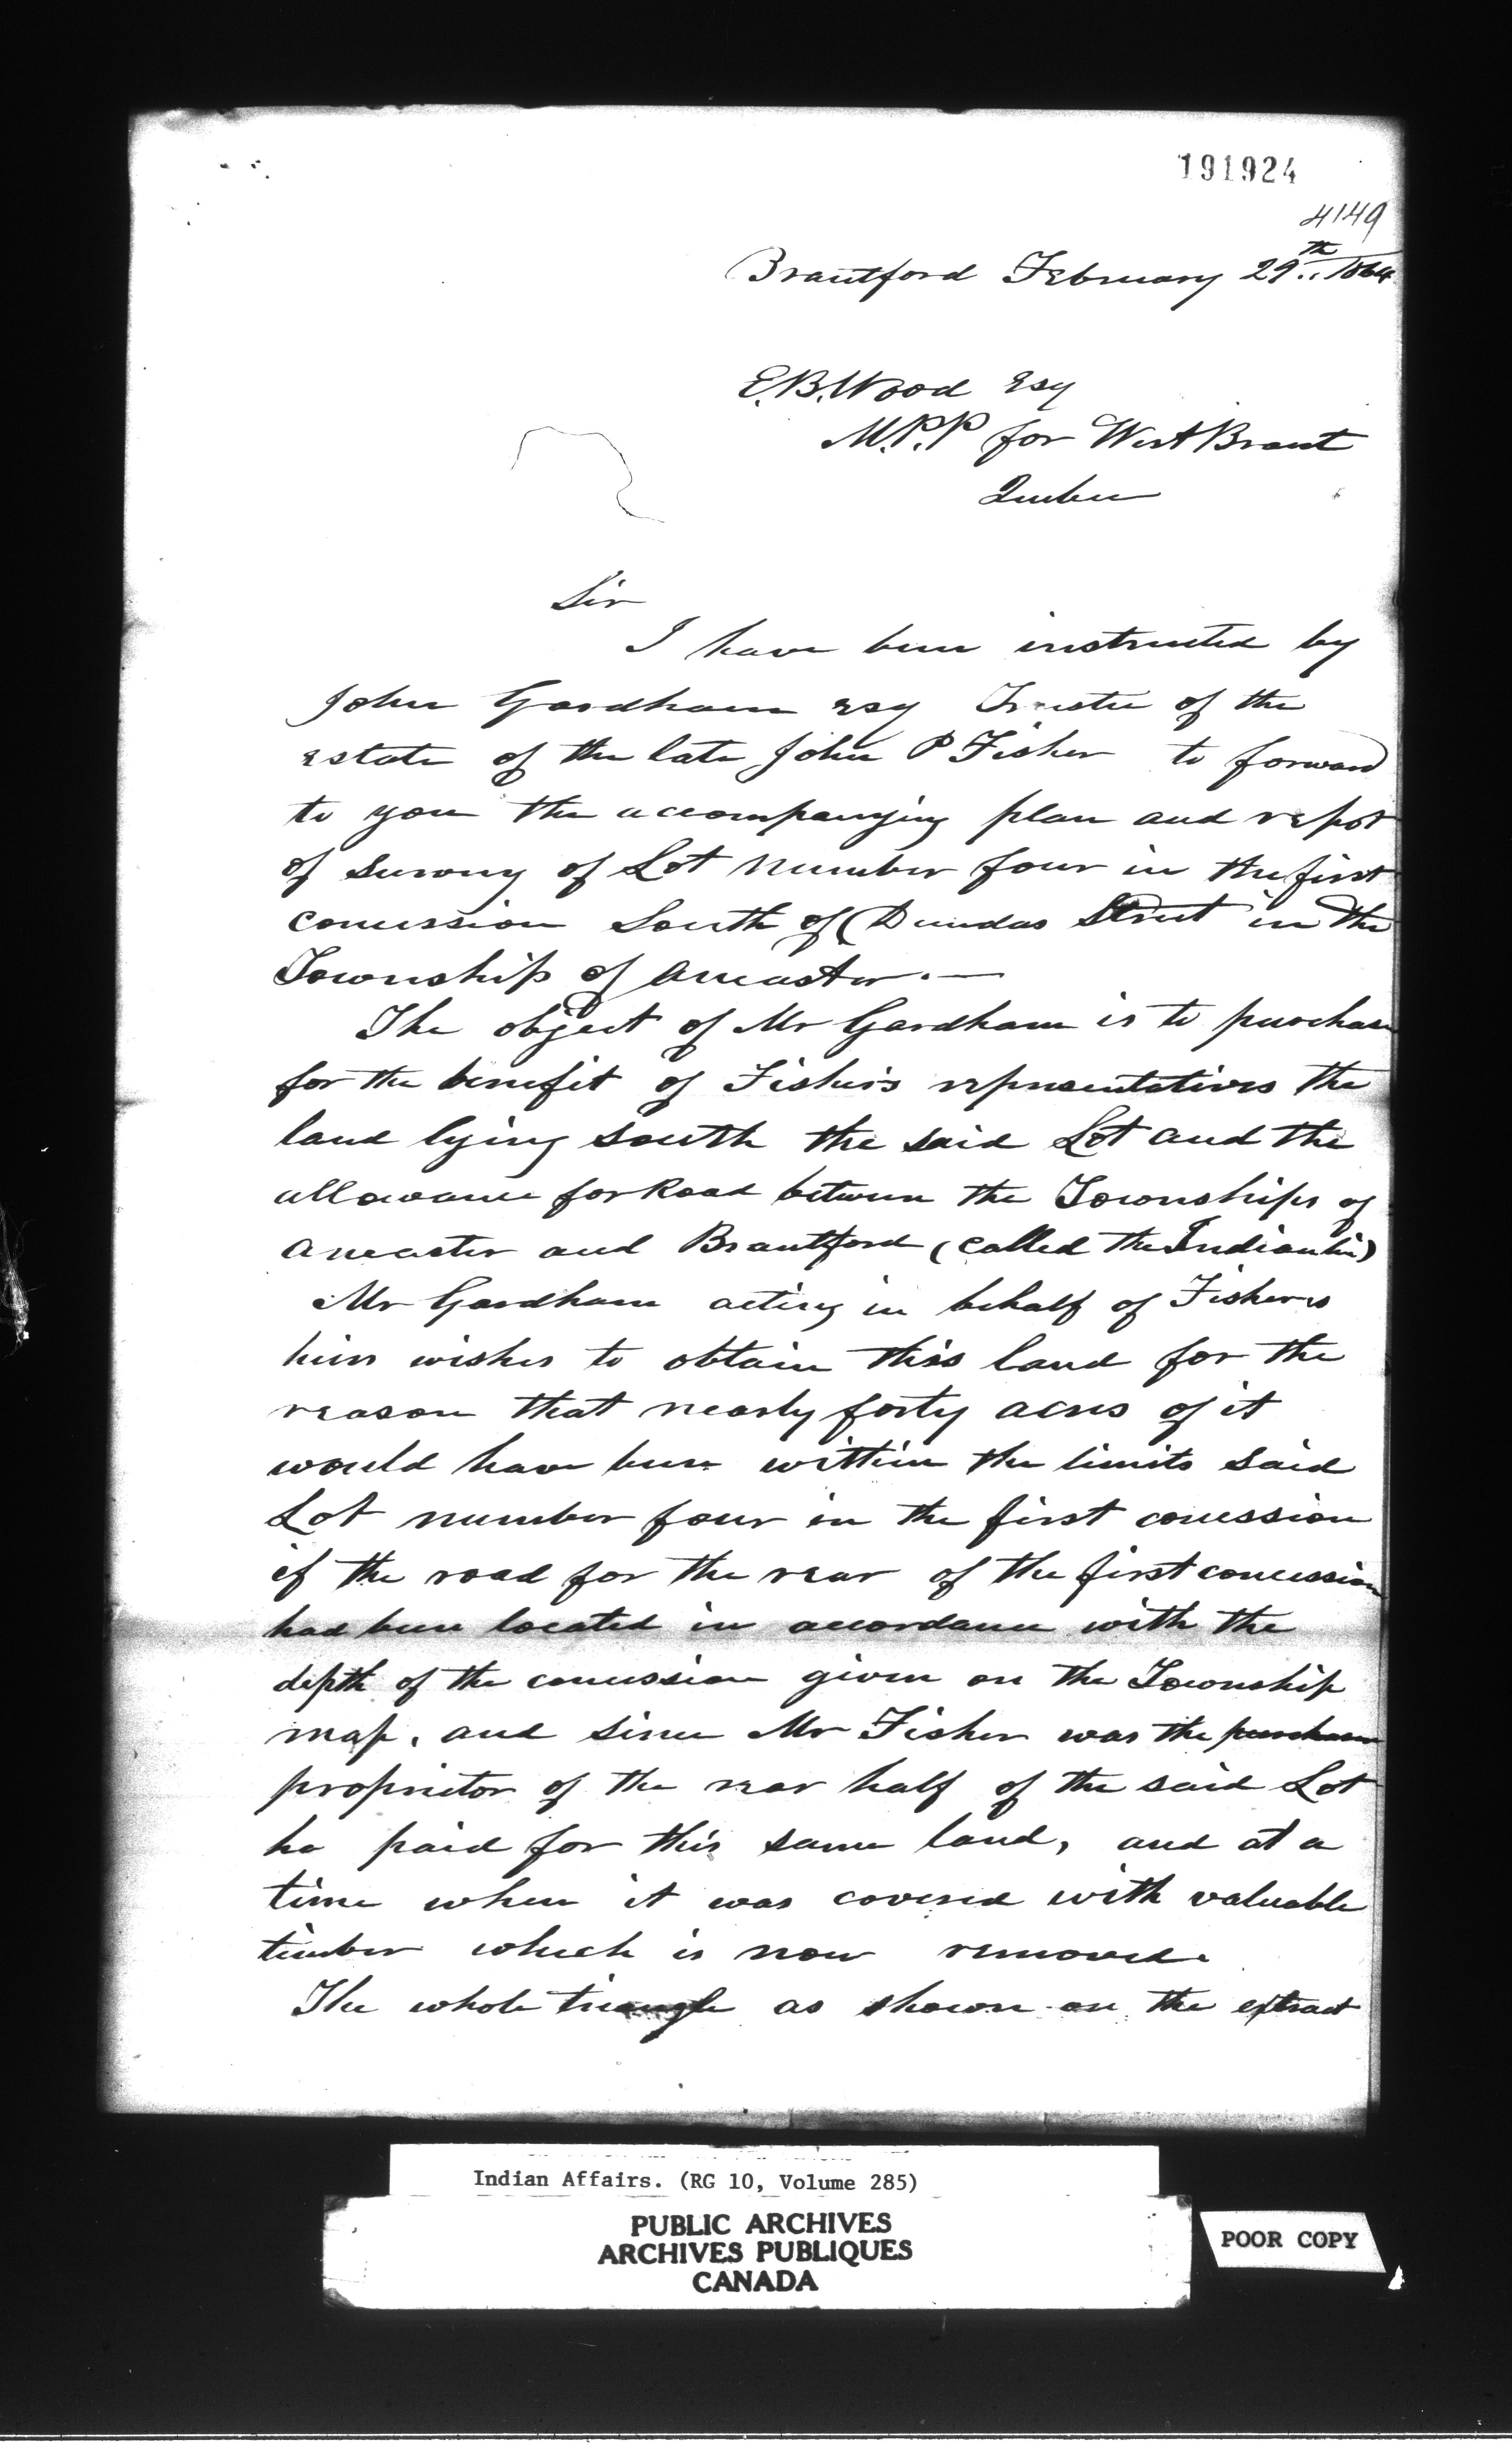 191924
4149
Brantford February 29th 1864
E.B. Wood Esq
M.P.P for West Brant
Quebec
Sir
I have been instructed by
John Gardham Esq Trustee of the
Estate of the late John P Fisher to forward
to you the accompanying plan and report
of survey of Lot number four in the first
concession South of Dundas Street in the
Township of Ancaster.—
The object of Mr Gardham is to purchase
for the benefit of Fisher's representatives the
land lying south the said Lot and the
allowance for Road between the Townships of
Ancaster and Brantford (called the Indian line)
Mr Gardham acting in behalf of Fishers
heirs wishes to obtain this land for the
reason that nearly forty acres of it
would have been within the limits said
Lot number four in the first concession
if the road for the rear of the first concession
had been located in accordance with the
depth of the concession given on the Township
map, and since Mr Fisher was the purchaser
proprietor of the rear half of the said Lot
he paid for this same land, and at a
time when it was covered with valuable
timber which is now removed.
The whole triangle as shown on the extract
Indian Affairs. (RG 10, Volume 285)
PUBLIC ARCHIVES
ARCHIVES PUBLIQUES
CANADA
POOR COPY